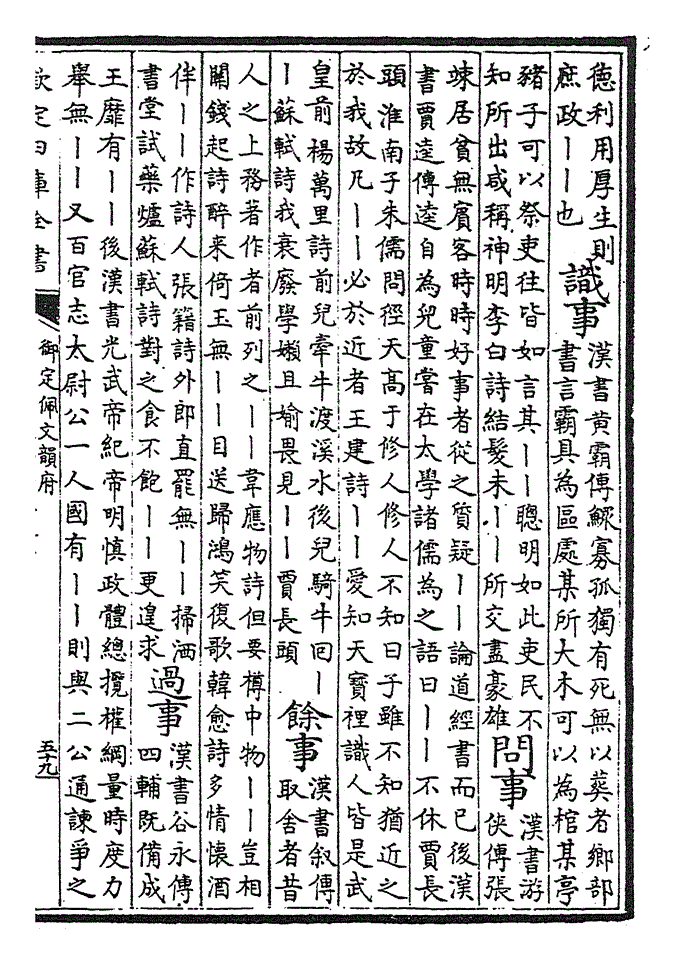 德利用厚生則
庶政丨丨也
識事
漢書黄霸傳鰥寡孤獨有死無以葬者鄉部
書言霸具為區處某所大木可以為棺某亭
豬子可以祭吏往皆如言其丨丨聰明如此吏民不
知所出咸稱神明李白詩結髮未丨丨所交盡豪雄
問事
漢書游
俠傳張
竦居貧無賓客時時好事者從之質疑丨丨論道經書而已後漢
書賈逵傳逵自為兒童嘗在太學諸儒為之語曰丨丨不休賈長
頭淮南子朱儒問徑天髙于修人修人不知曰子雖不知猶近之
於我故凡丨丨必於近者王建詩丨丨愛知天寶裡識人皆是武
皇前楊萬里詩前兒牽牛渡溪水後兒騎牛回丨
丨蘇軾詩我衰廢學嬾且媮畏見丨丨賈長頭
餘事
漢書叙傳
取舍者昔
人之上務著作者前列之丨丨韋應物詩但要樽中物丨丨豈相
關錢起詩醉来倚玉無丨丨目送歸鴻笑復歌韓愈詩多情懷酒
伴丨丨作詩人張籍詩外郎直罷無丨丨掃洒
書堂試藥爐蘇軾詩對之食不飽丨丨更遑求
過事
漢書谷永傳
四輔既備成
王靡有丨丨後漢書光武帝紀帝明慎政體總攬權綱量時度力
舉無丨丨又百官志太尉公一人國有丨丨則與二公通諫爭之
欽定四庫全書
御定佩文韻府
五十九